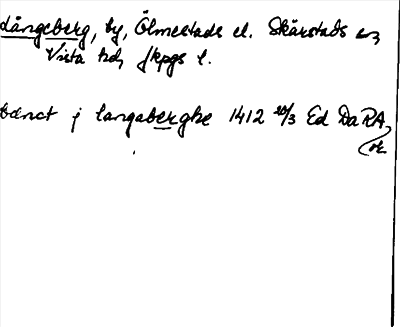 Långeberg, by, Ölmestads el. Skärstads sn,
Vista hd, Jkpgs l.
bænct j langaberghe 1412 20/3 Ed DaRA,
or.